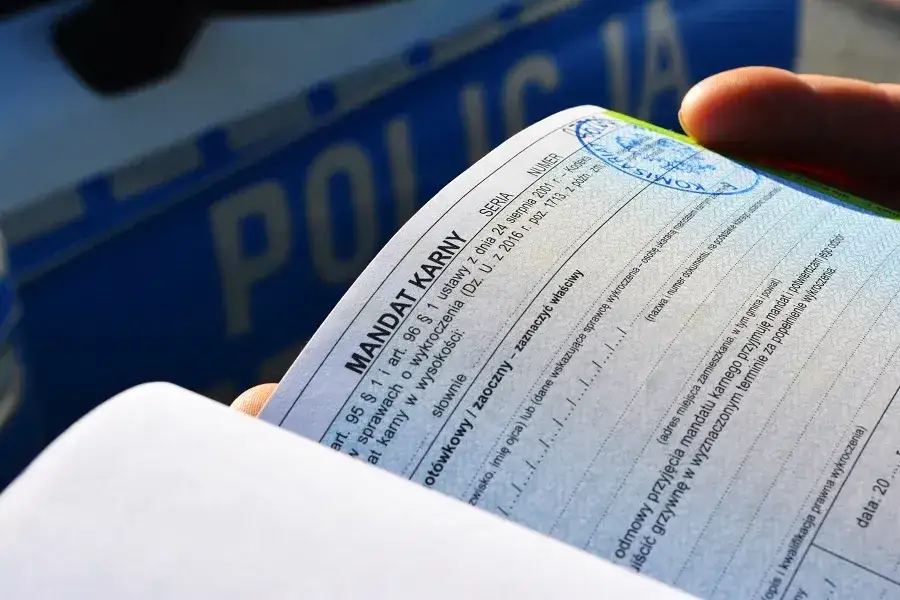 POLICJA
MANDAT KARNY SERIA NUMER
art. 95 § 1 i art. 96 § 1 ustawy z dnia 24 sierpnia 2001 r. – Kodeks
w sprawach o wykroczenia (Dz. U. z 2016 r. poz. 1713, z późn. zm
at karny w wysokości:
słownie
otówkowy / zaoczny – zaznaczyć właściwy
zwisko, imię ojca) lub (dane wskazujące sprawcę wykroczenia – osobę ukaraną mandatem
(nazwa i numer dokumentu, na podstawie którego
(adres miejsca zamieszkania, w tym gmina i powiat)
odmowy przyjęcia mandatu karnego przyjmuję mandat i potwierdzam jego odbiór
uiścić grzywnę w wyznaczonym terminie za popełnienie wykroczenia
(opis i kwalifikacja prawna wykroczenia)
data: 20 ... r
ny
KOMIS